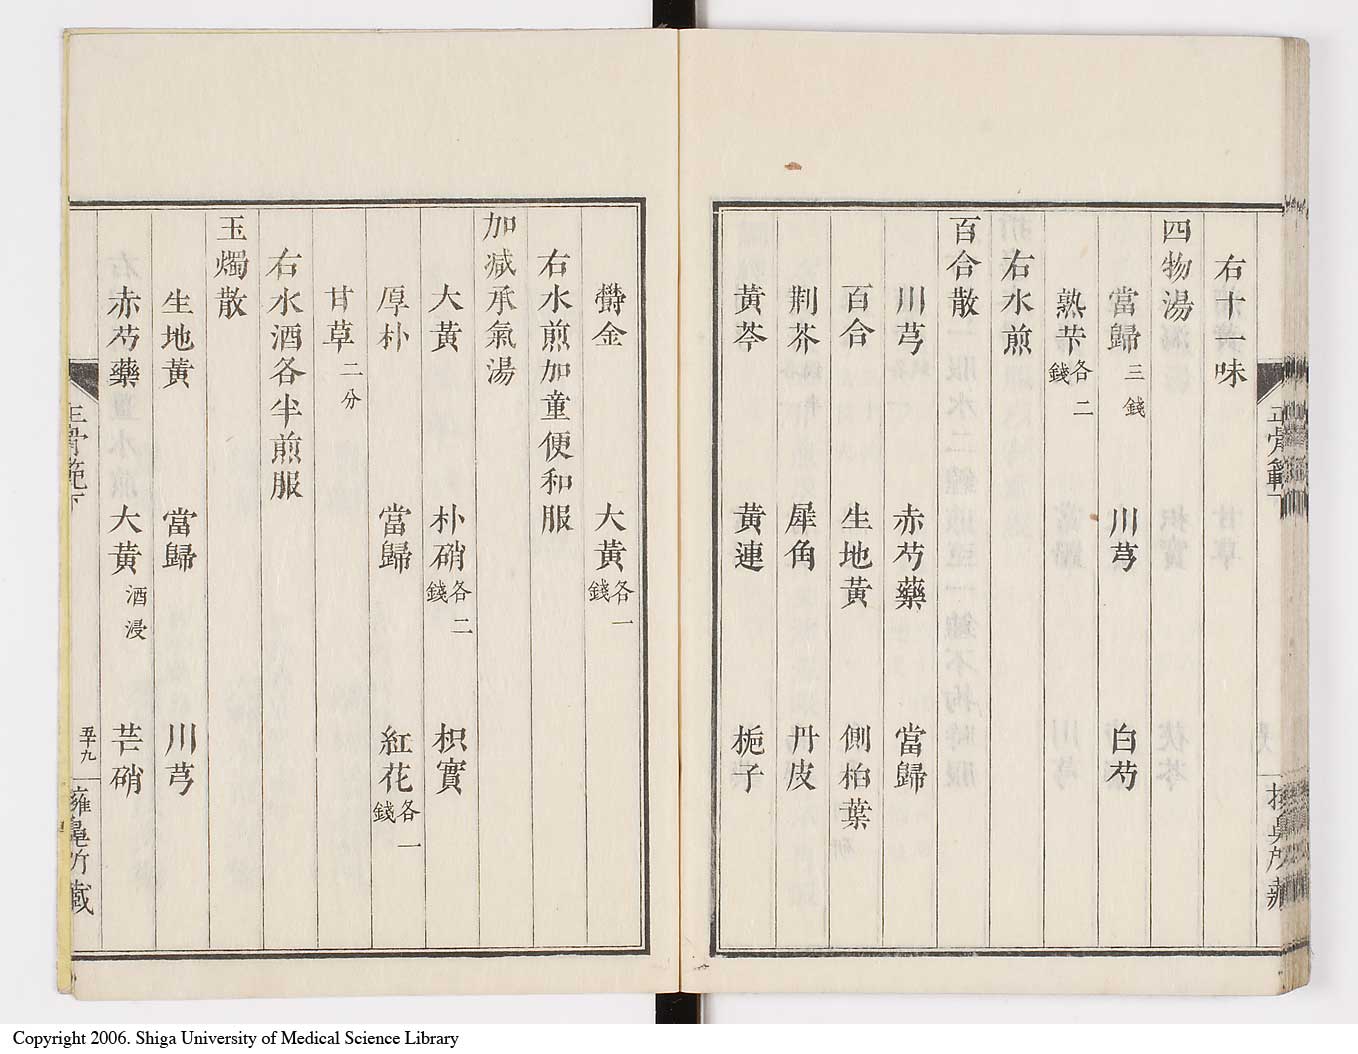 右十一味
四物湯
當歸三錢 川芎 白芍
熟芐各二錢
右水煎
百合散
川芎 赤芍藥 當歸
百合 生地黃 側柏葉
荆芥 犀角 丹皮
黃芩 黃連 梔子
欝金 大黃各一錢
右水煎加童便和服
加减承氣湯
大黃 朴硝各二錢 枳實
厚朴 當歸 紅花各一錢
甘草二分
右水酒各半煎服
玉燭散
生地黃 當歸 川芎
赤芍藥 大黃酒浸 芒硝
正骨範下
五十九
Copyright 2006. Shiga University of Medical Science Library